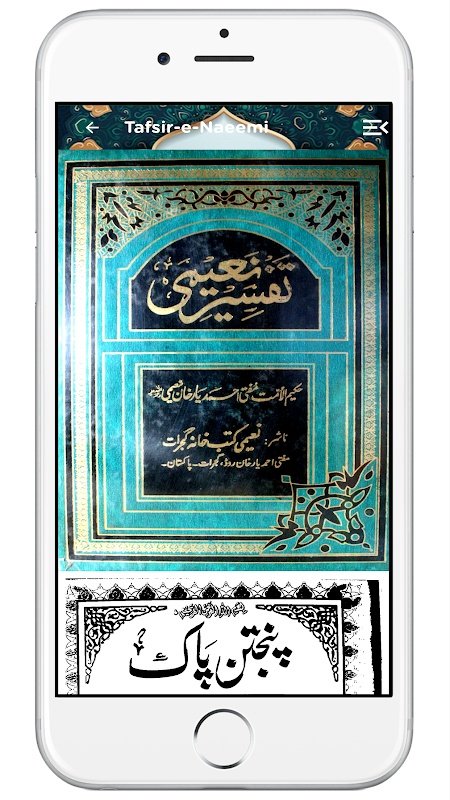 Tafsir-e-Naeemi
تفسیر نعیمی
حکیم الامت مفتی احمد یار خان نعیمی
ناشر: نعیمی کتب خانہ گجرات
مفتی احمد یار خان روڈ، گجرات۔ پاکستان۔
پنجتن پاک